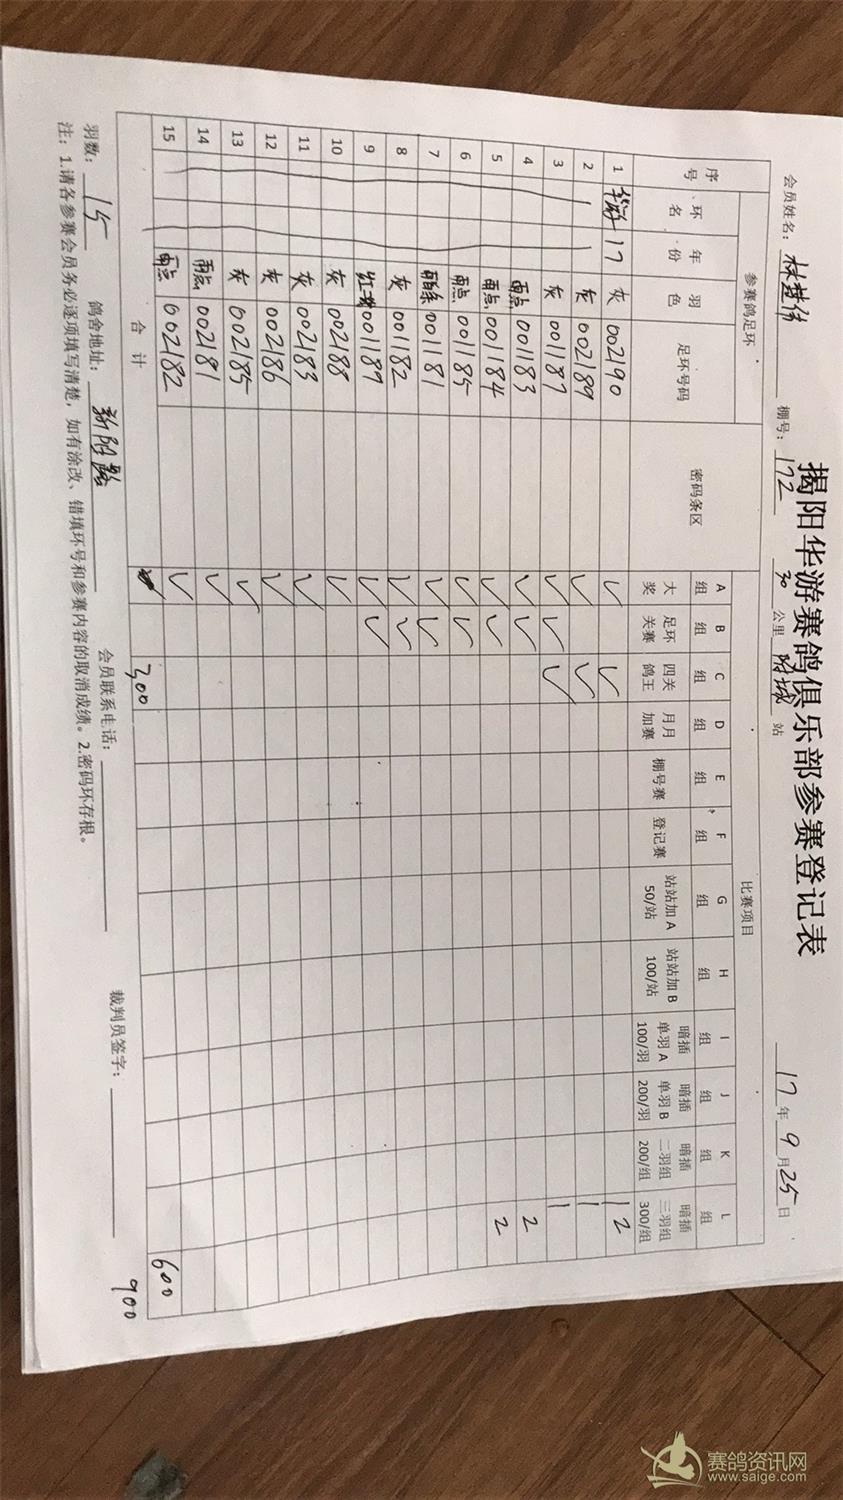 揭阳华游赛鸽俱乐部参赛登记表
会员姓名： 棚号：172 30 公里 站 17 年 9 月 25 日
序号 参赛鸽足环 密码条区 比赛项目
环名 年份 羽色 足环号码 A组 B组 C组 D组 E组 F组 G组 H组 I组 J组 K组 L组
大奖 足环关赛 四关鸽王 月月加赛 棚号赛 登记赛 站站加A 50/站 站站加B 100/站 暗插单羽A 100/羽 暗插单羽B 200/羽 暗插二羽组 200/组 暗插三羽组 300/组
1 华游 17 灰 002190 ✓ ✓ 1 2
2 灰 002189 ✓ ✓ 1
3 灰 001187 ✓ ✓ ✓ 1
4 雨点 001183 ✓ ✓ 2
5 雨点 001184 ✓ ✓ 2
6 雨点 001185 ✓ ✓
7 001181 ✓ ✓
8 灰 001182 ✓ ✓
9 001189 ✓ ✓
10 灰 002188 ✓
11 灰 002183 ✓
12 灰 002186 ✓
13 灰 002185 ✓
14 雨点 002181 ✓
15 雨点 002182 ✓
合计 300 600
900
羽数：15 鸽舍地址：新阳路 会员联系电话： 裁判员签字：
注：1.请各参赛会员务必逐项填写清楚，如有涂改、错填环号和参赛内容的取消成绩。2.密码环存根。
赛鸽资讯网
www.saige.com